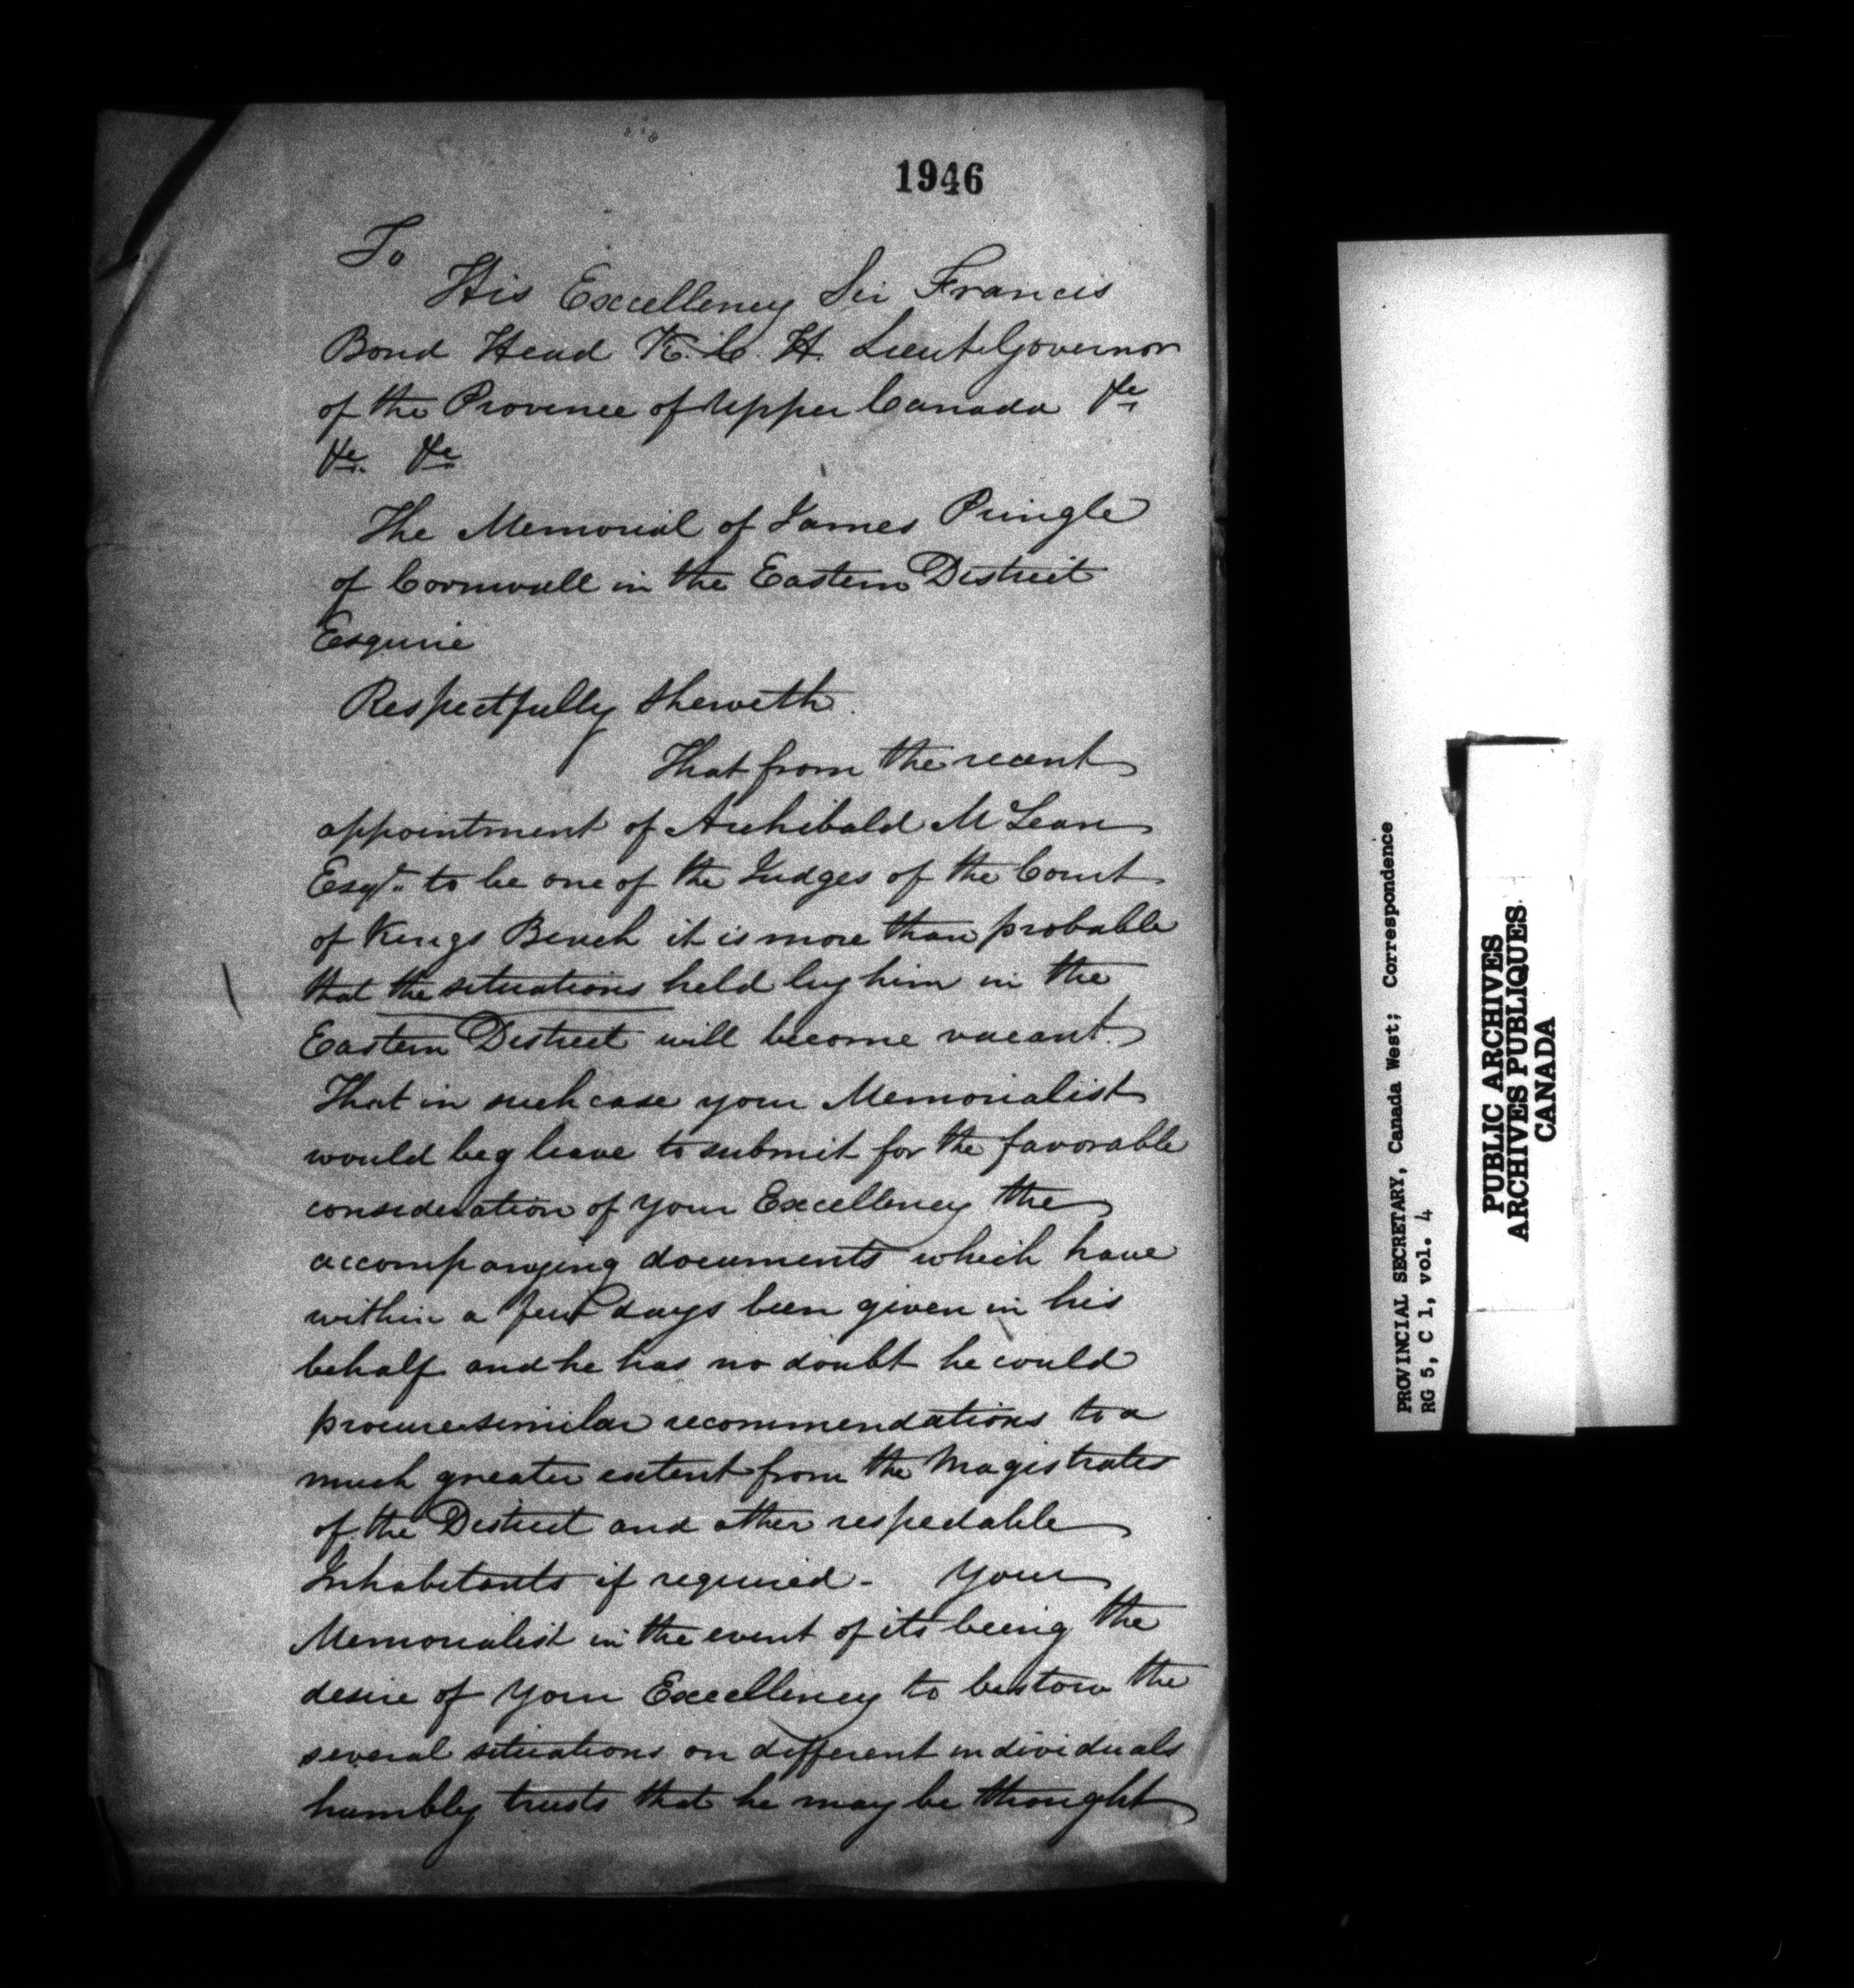 1946
To
His Excellency Sir Francis
Bond Head K. C. H. Lieut Governor
of the Province of Upper Canada &c
&c. &c
The Memorial of James Pringle
of Cornwall in the Eastern District
Esquire
Respectfully Sheweth.
That from the recent
appointment of Archibald McLean
Esqr. to be one of the Judges of the Court
of Kings Bench it is more than probable
that the situations held by him in the
Eastern District will become vacant.
That in such case your Memorialist
would beg leave to submit for the favorable
consideration of your Excellency the
accompanying documents which have
within a few days been given in his
behalf and he has no doubt he could
procure similar recommendations to a
much greater extent from the Magistrates
of the District and other respectable
Inhabitants if required - Your
Memorialist in the event of its being the
desire of your Excellency to bestow the
several situations on different individuals
humbly trusts that he may be thought
PROVINCIAL SECRETARY, Canada West; Correspondence
RG 5, C 1, vol. 4
PUBLIC ARCHIVES
ARCHIVES PUBLIQUES
CANADA